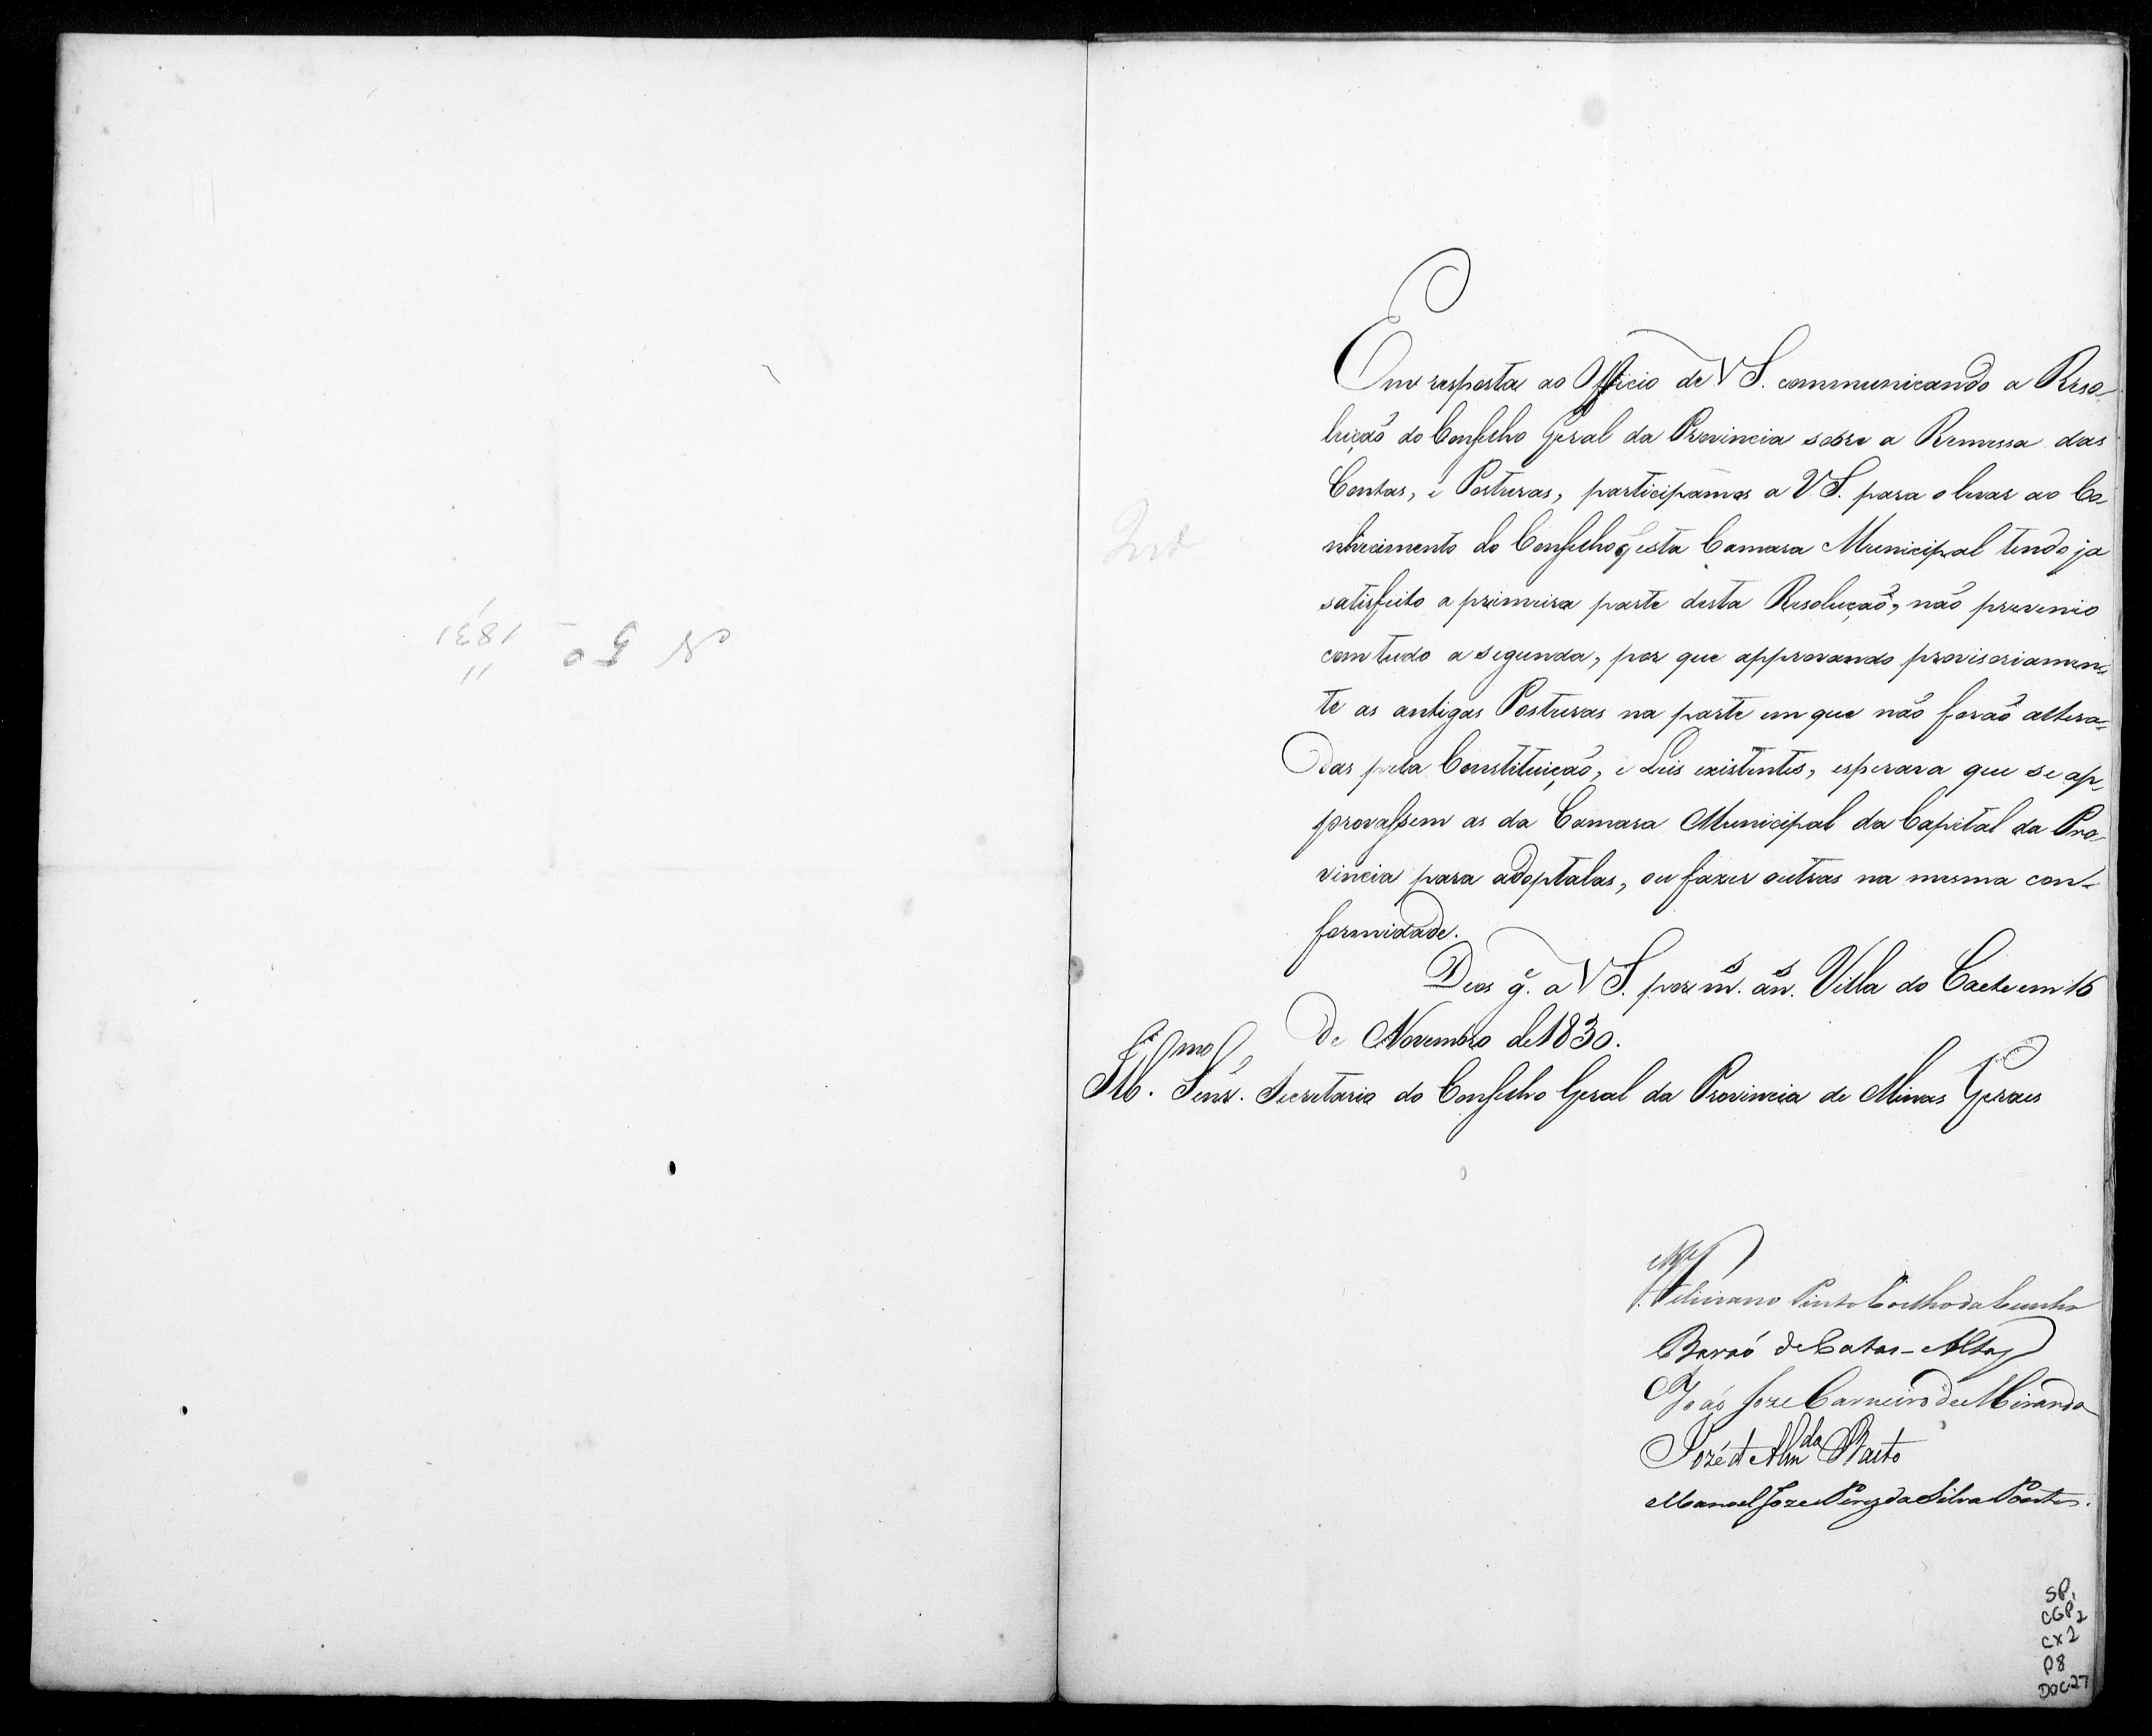 Em resposta ao Officio de V S. communicando a Reso-
lução do Conselho Geral da Provincia sobre a Remessa das
Contas, e Posturas, participamos a V. S. para o levar ao Co-
nhecimento do Conselho q̃ esta Camara Municipal tendo ja
satisfeito a primeira parte desta Resolução, não prevenio
com tudo a segunda, por que approvando provisoriamen-
te as antigas Posturas na parte em que não forão altera-
das pela Constituição, e Leis existentes, esperava que se ap-
provassem as da Camara Municipal da Capital da Pro-
vincia para adoptalas, ou fazer outras na mesma con-
formidade.
Deos g.e a V S. por m.s an.s Villa do Caete em 15
de Novembro de 1830.
Ill.mo Senr. Secretario do Conselho Geral da Provincia de Minas Geraes
Feliciano Pinto Coelho da Cunha
Barão de Catas-Altas
João Joze Carneiro de Miranda
Jozé d Alm.da
Manoel Joze Pires da Silva Pontes.
N 50 - 1831
SP
CGP 2
CX2
P8
DOC27